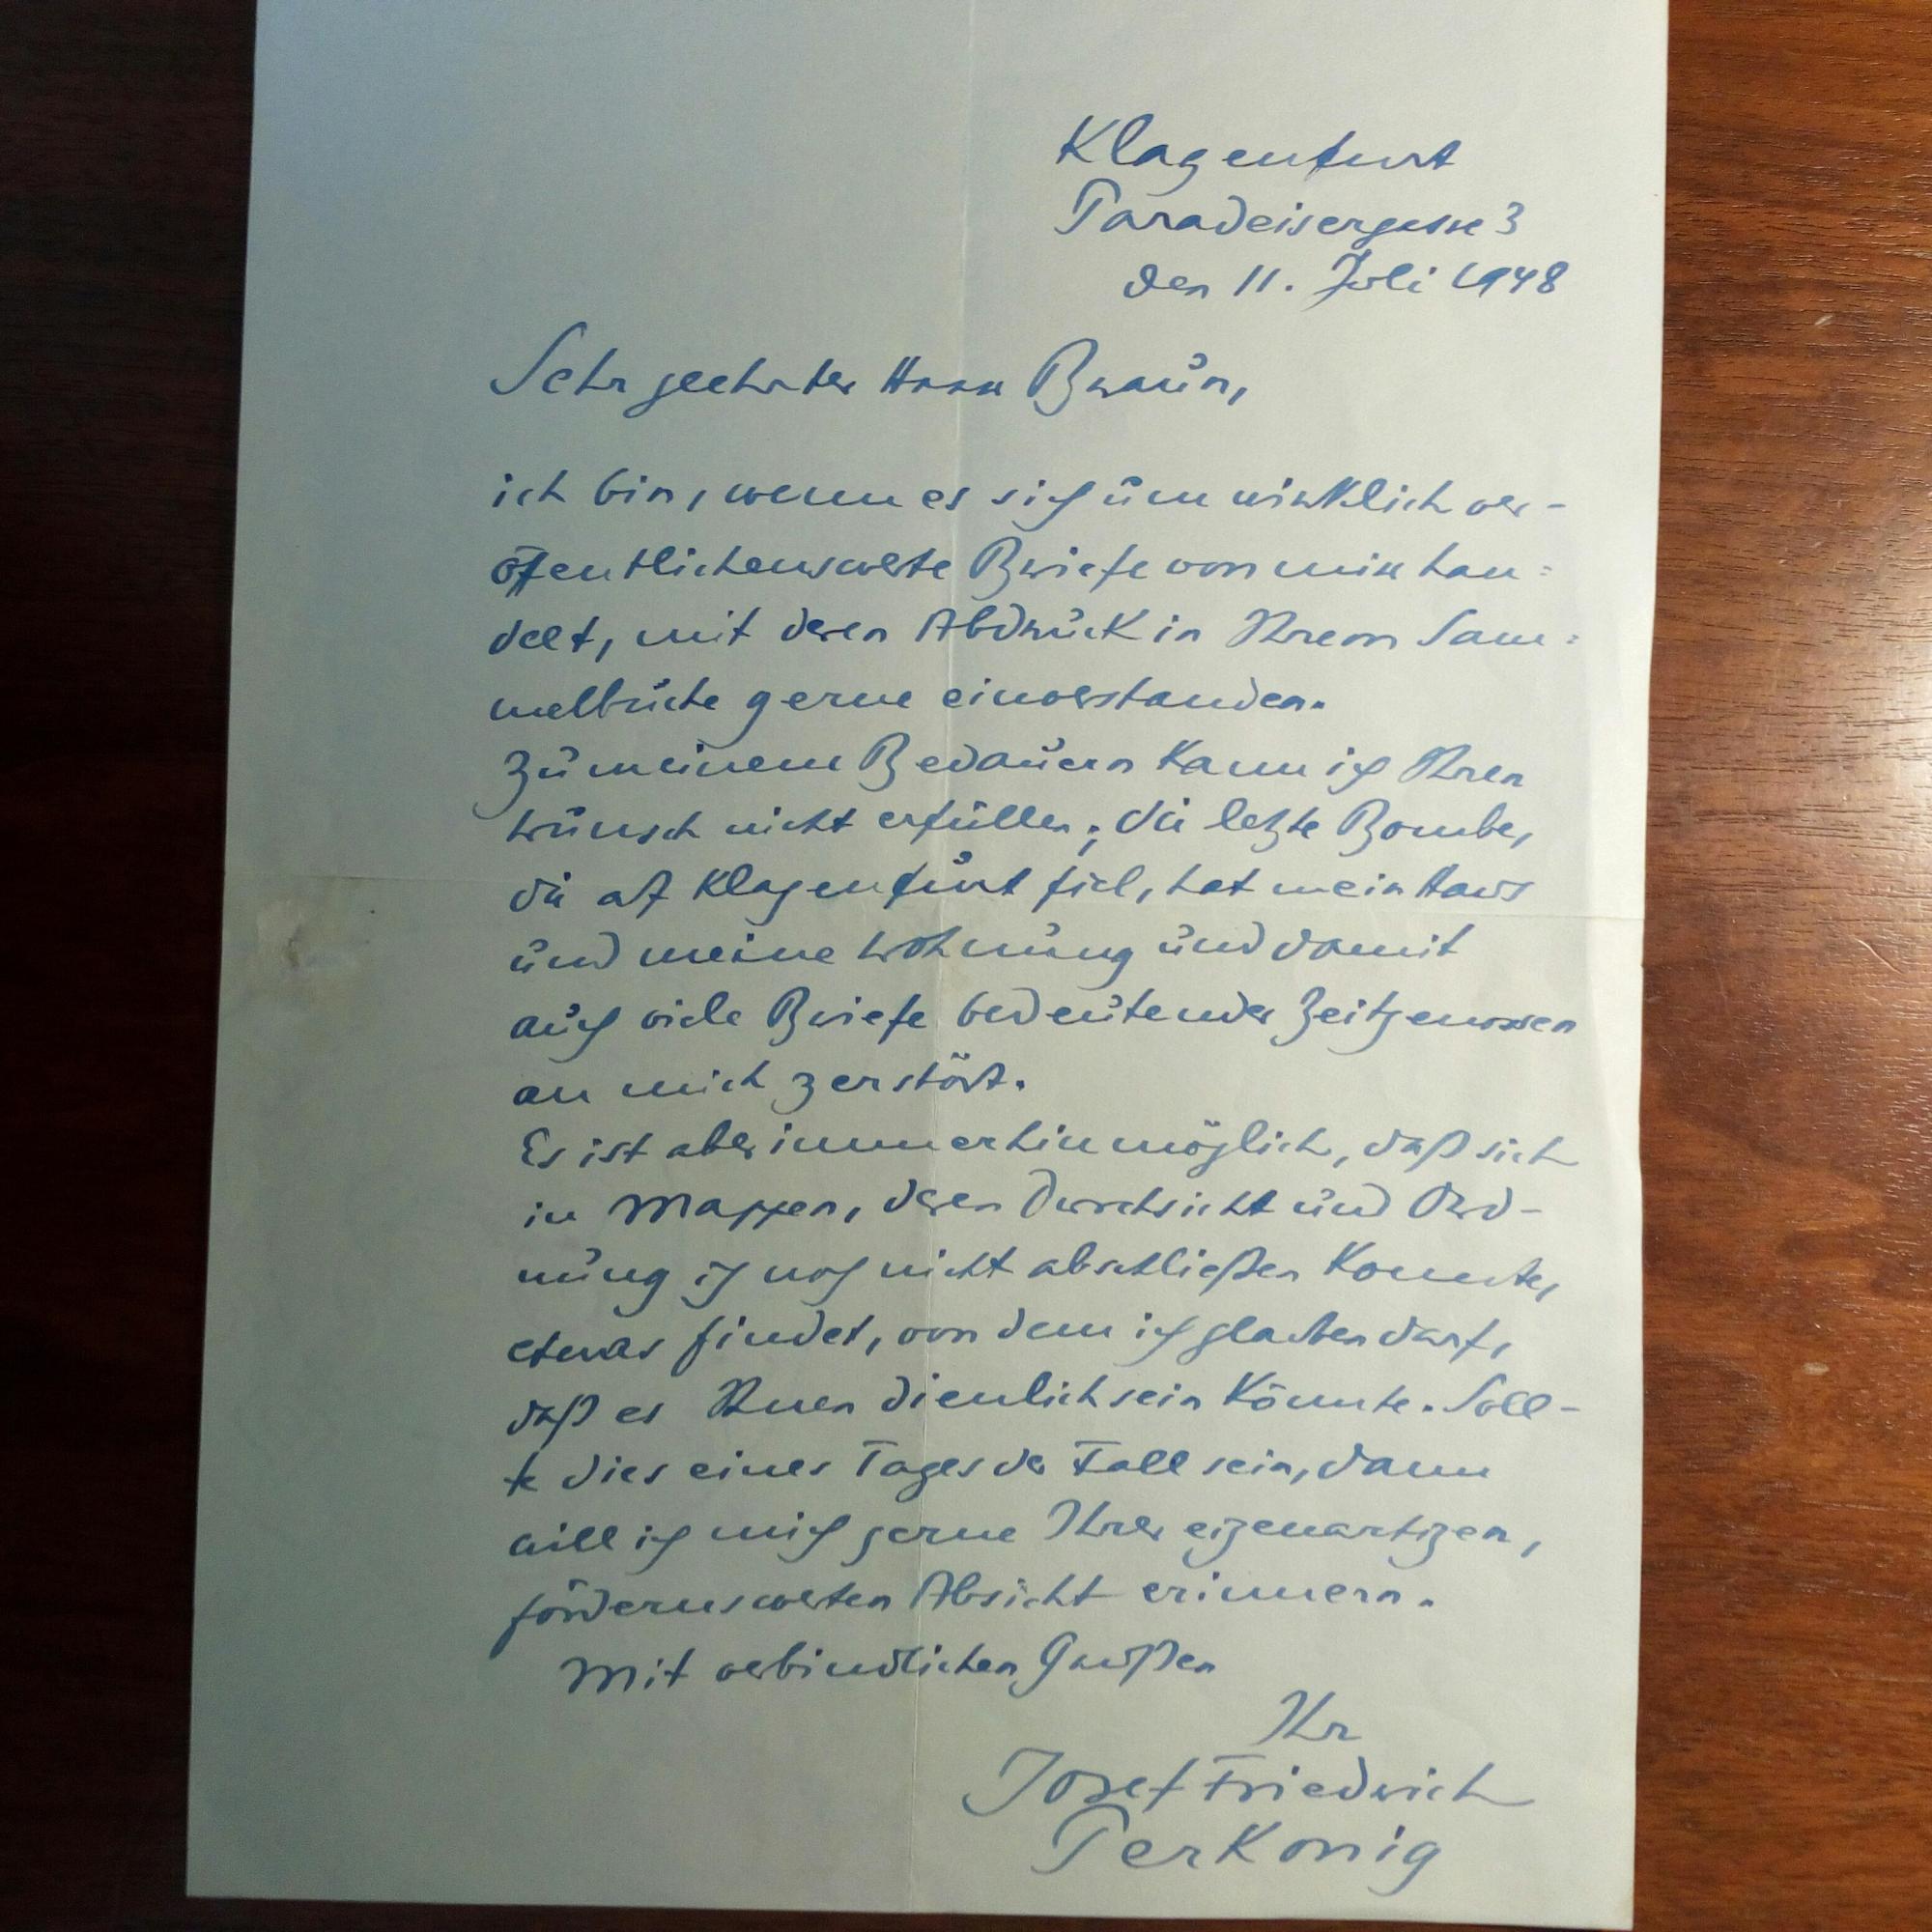 Klagenfurt
Paradeisergasse 3
den 11. Juli 1948
Sehr geehrter Herr Braun,
ich bin, wenn es sich um wirklich ver-
öffentlichenswerte Briefe von mir han-
delt, mit deren Abdruck in Ihrem Sam-
melbuche gerne einverstanden.
Zu meinem Bedauern kann ich Ihren
Wunsch nicht erfüllen; die letzte Bombe,
die auf Klagenfurt fiel, hat mein Haus
und meine Wohnung und damit
auch viele Briefe bedeutender Zeitgenossen
an mich zerstört.
Es ist aber immerhin möglich, daß sich
in Mappen, deren Durchsicht und Ord-
nung ich noch nicht abschließen konnte,
etwas findet, von dem ich glauben darf,
daß es Ihnen dienlich sein könnte. Soll-
te dies eines Tages der Fall sein, dann
will ich mich gerne Ihrer eigenartigen,
fördernswerten Absicht erinnern.
Mit verbindlichen Grüßen
Ihr
Josef Friedrich
Perkonig